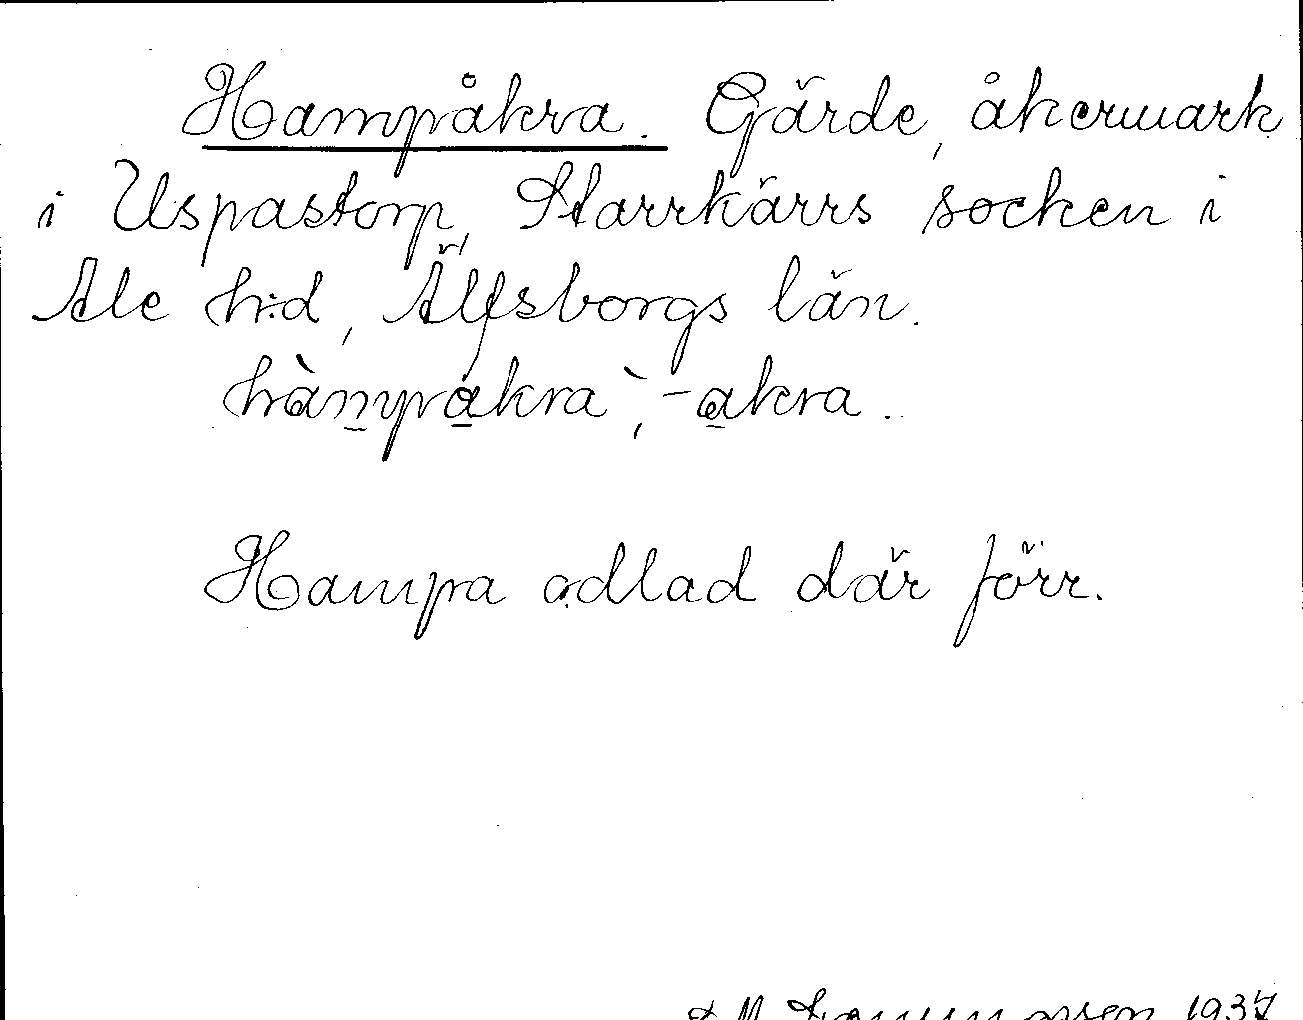 Hampåkra. Gärde, åkermark
i Uspastorp, Starrkärrs socken i
Ale h:d, Älfsborgs län.
hàmpåkra, -akra.
Hampa odlad där förr.
1937